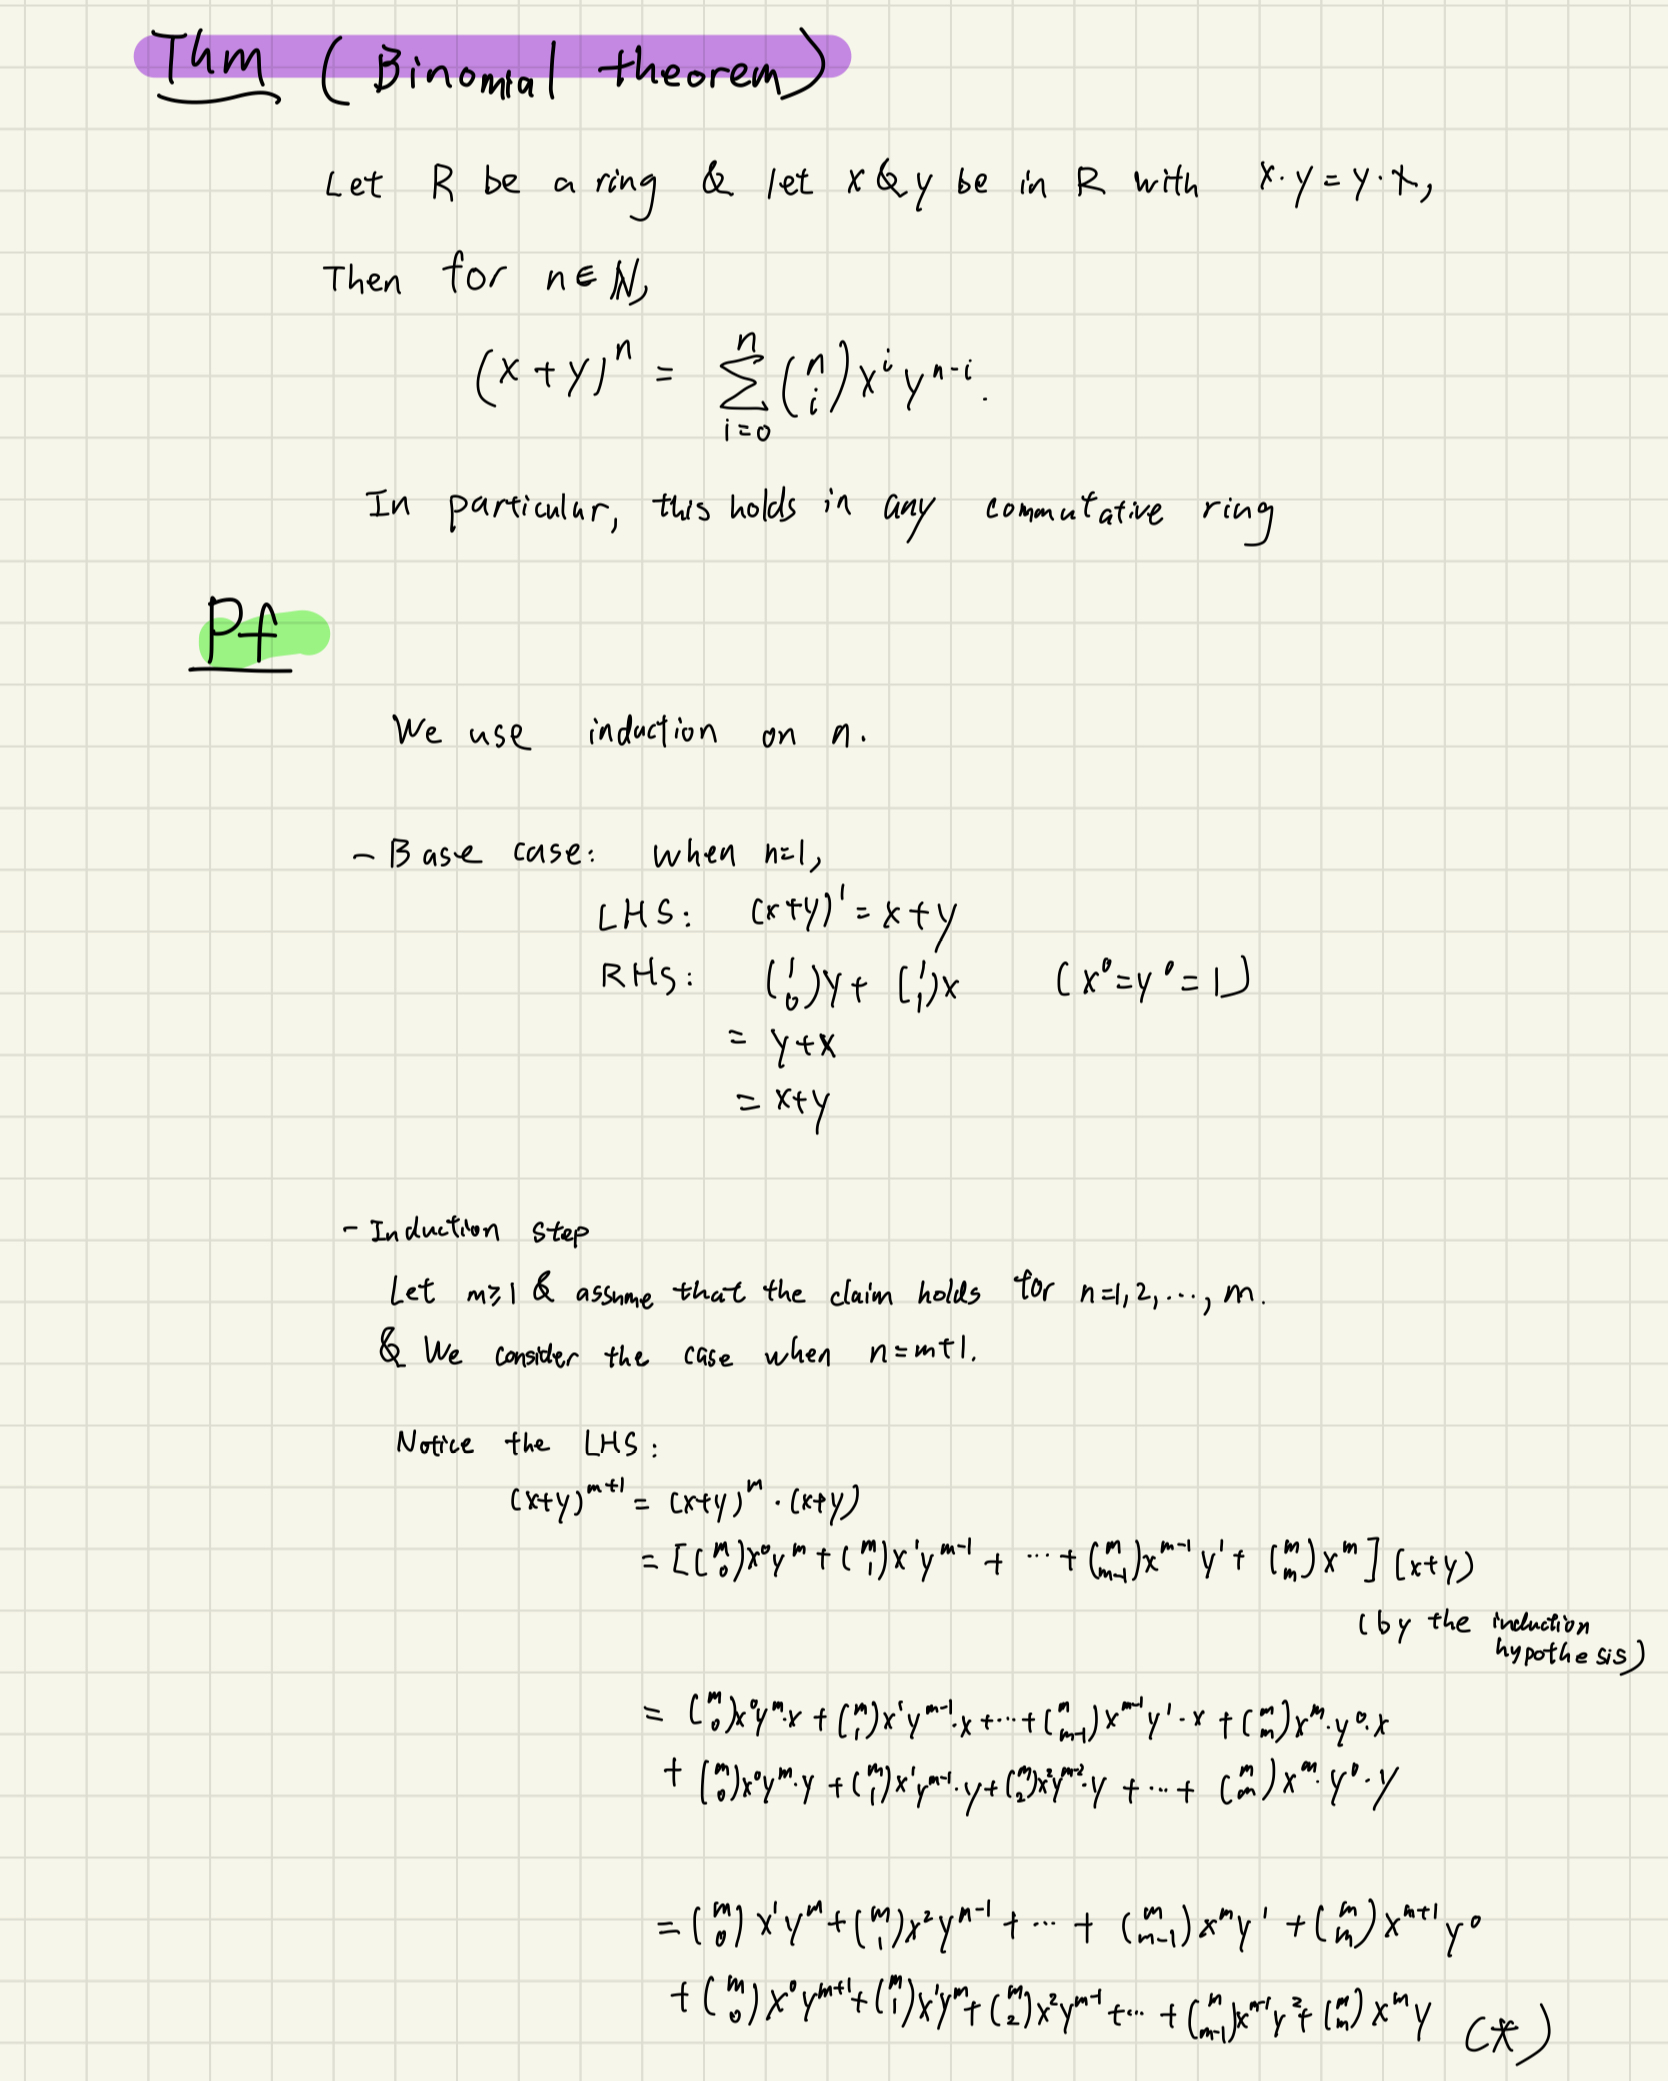 Thm (Binomial theorem)
Let R be a ring & let x & y be in R with x·y = y·x,
Then for n ∈ ℕ,
(x+y)^n = \sum_{i=0}^{n} \binom{n}{i} x^i y^{n-i}.
In particular, this holds in any commutative ring
Pf
We use induction on n.
- Base case: when n=1,
LHS: (x+y)^1 = x+y
RHS: \binom{1}{0}y + \binom{1}{1}x (x^0 = y^0 = 1)
= y+x
= x+y
- Induction step
Let m≥1 & assume that the claim holds for n=1,2,···, m.
& We consider the case when n=m+1.
Notice the LHS:
(x+y)^{m+1} = (x+y)^m · (x+y)
= [\binom{m}{0}x^0y^m + \binom{m}{1}x^1y^{m-1} + ··· + \binom{m}{m-1}x^{m-1}y^1 + \binom{m}{m}x^m] (x+y)
(by the induction
hypothesis)
= \binom{m}{0}x^0y^m·x + \binom{m}{1}x^1y^{m-1}·x + ··· + \binom{m}{m-1}x^{m-1}y^1·x + \binom{m}{m}x^m·y^0·x
+ \binom{m}{0}x^0y^m·y + \binom{m}{1}x^1y^{m-1}·y + \binom{m}{2}x^2y^{m-2}·y + ··· + \binom{m}{m}x^m·y^0·y
= \binom{m}{0}x^1y^m + \binom{m}{1}x^2y^{m-1} + ··· + \binom{m}{m-1}x^my^1 + \binom{m}{m}x^{m+1}y^0
+ \binom{m}{0}x^0y^{m+1} + \binom{m}{1}x^1y^m + \binom{m}{2}x^2y^{m-1} + ··· + \binom{m}{m-1}x^{m-1}y^2 + \binom{m}{m}x^my (*)